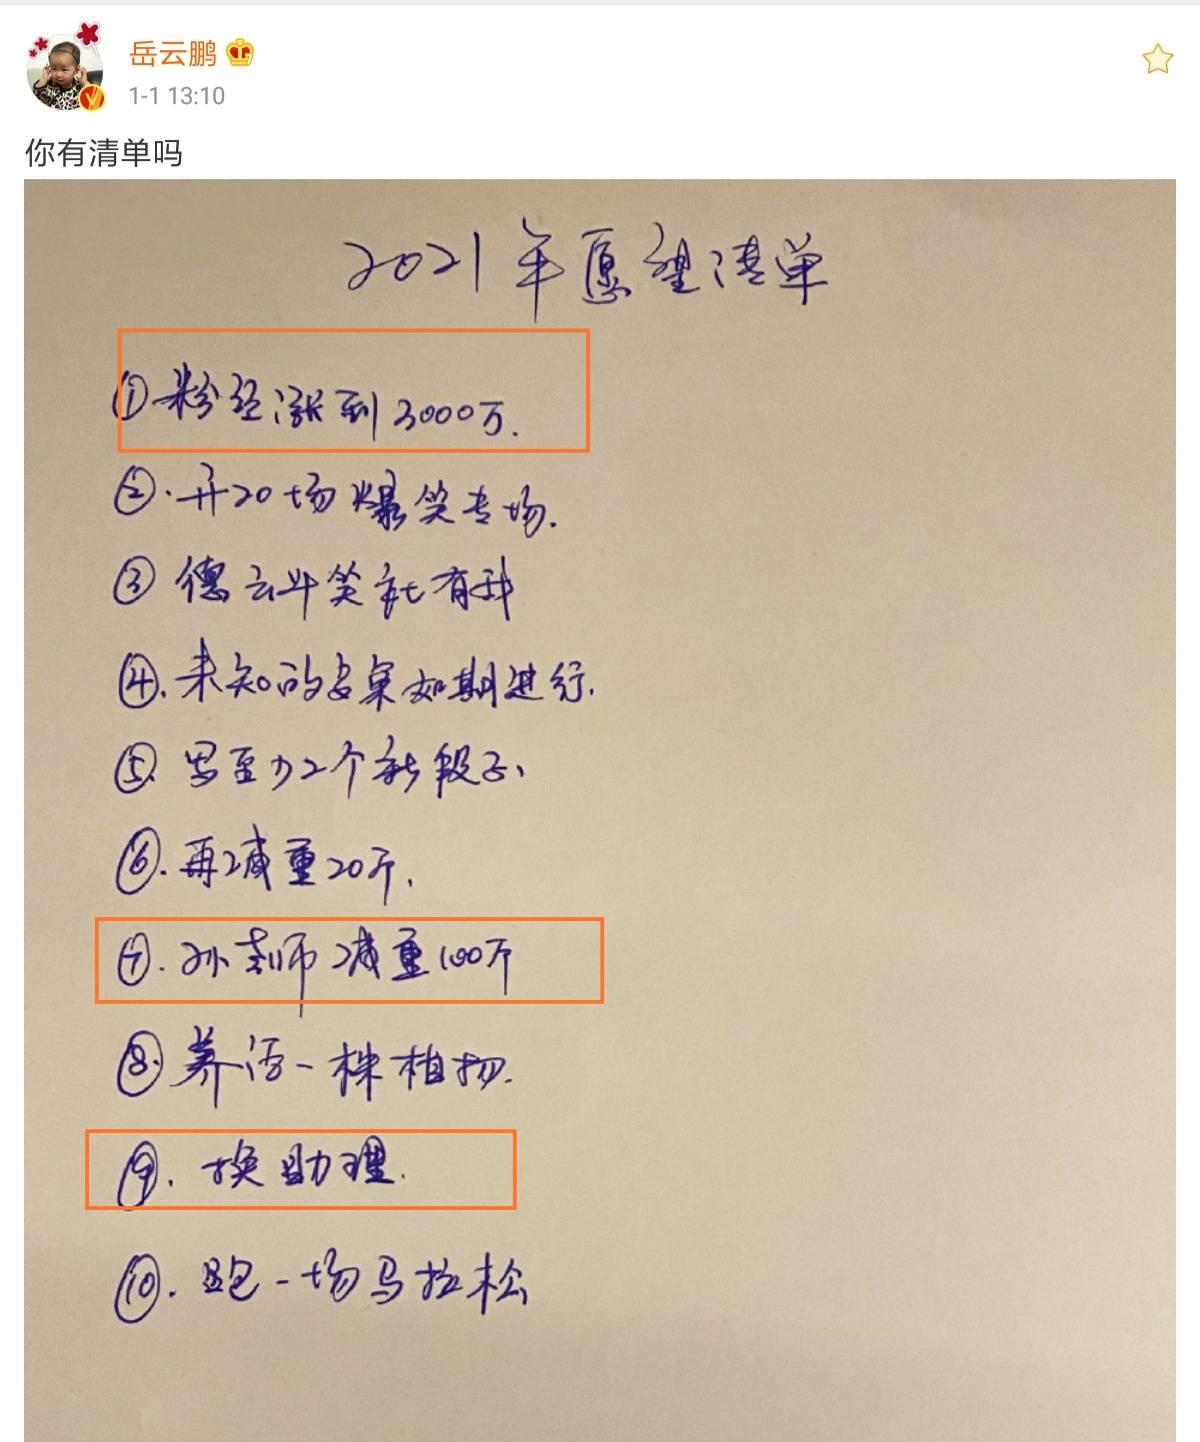 岳云鹏
1-1 13:10
你有清单吗
2021年愿望清单
①粉丝涨到3000万.
②.开20场爆笑专场.
③德云斗笑社有我
④.未知的专案如期进行.
⑤.写至少2个新段子、
⑥.再减重20斤.
⑦.孙老师减重100斤
⑧养活一株植物.
⑨.换助理.
⑩.跑一场马拉松